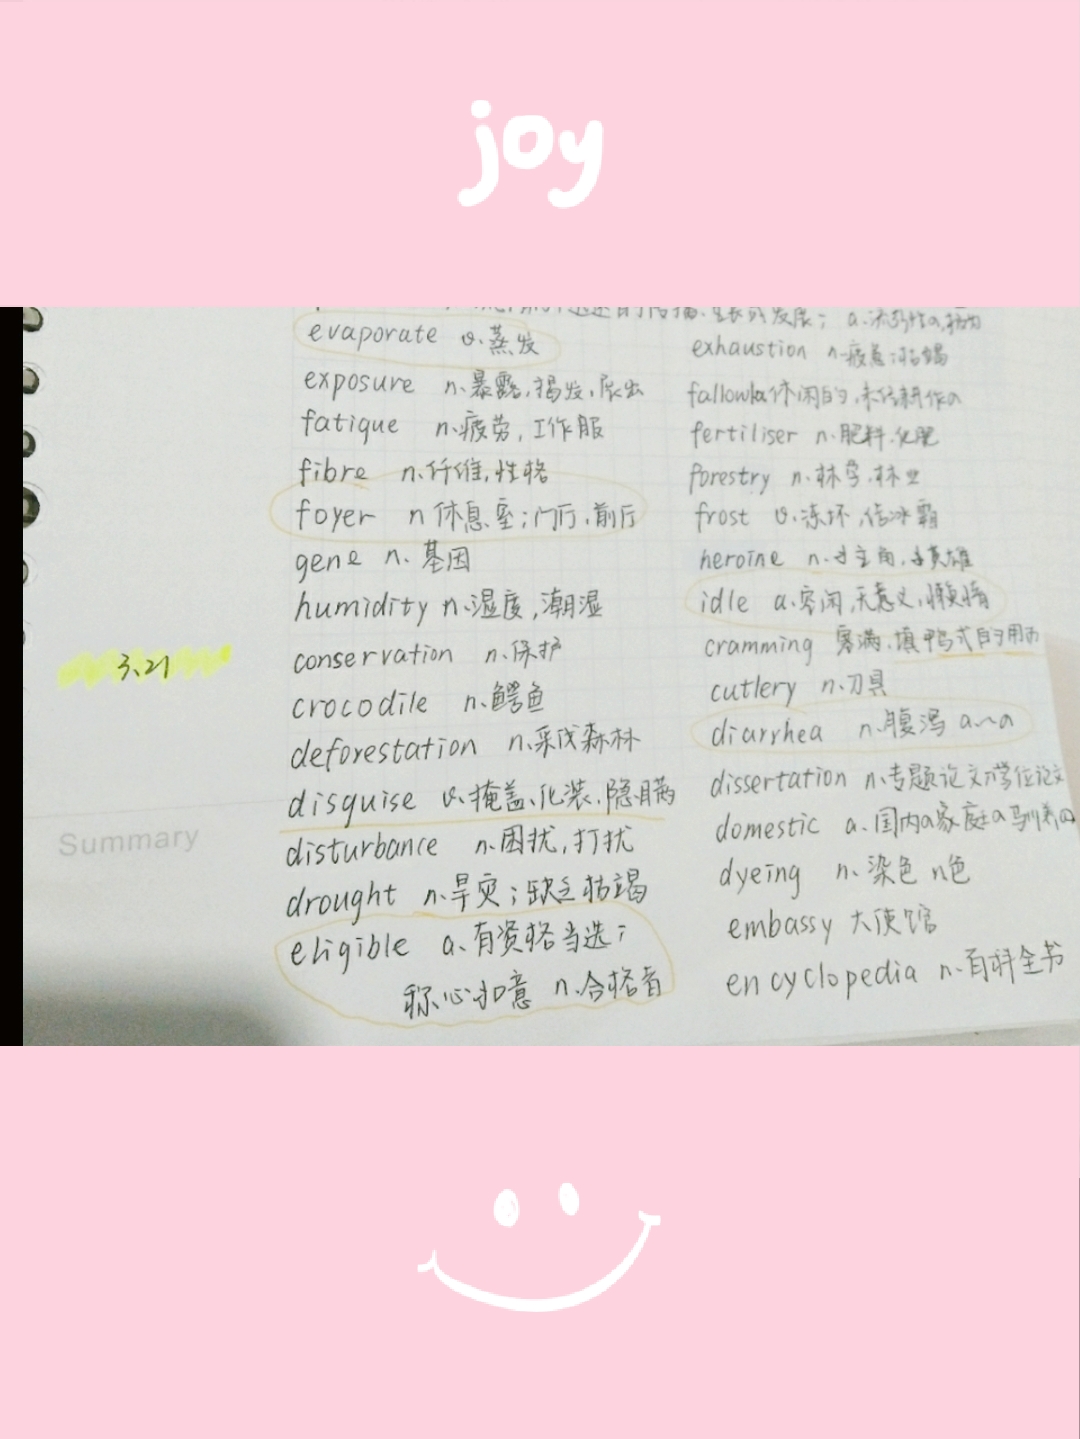 joy
evaporate v.蒸发
exposure n.暴露,揭发,展出
fatique n.疲劳,工作服
fibre n.纤维,性格
foyer n 休息室;门厅.前厅
gene n. 基因
humidity n.湿度,潮湿
3.21
conservation n.保护
crocodile n.鳄鱼
deforestation n.采伐森林
disguise v.掩盖.化装.隐瞒
Summary
disturbance n.困扰,打扰
drought n.旱灾;缺乏枯竭
eligible a.有资格当选;
称心如意 n.合格者
exhaustion n.疲惫;枯竭
休闲的,
fertiliser n.肥料.化肥
forestry n.林学.林业
frost v.冻坏,结冰霜
heroine n.女主角.女英雄
idle a.空闲,无意义,懒惰
cramming 塞满.填鸭式的用功
cutlery n.刀具
diarrhea n.腹泻
dissertation n.专题论文/学位论文
domestic a.国内a家庭a驯养a
dyeing n.染色 n色
embassy 大使馆
encyclopedia n.百科全书